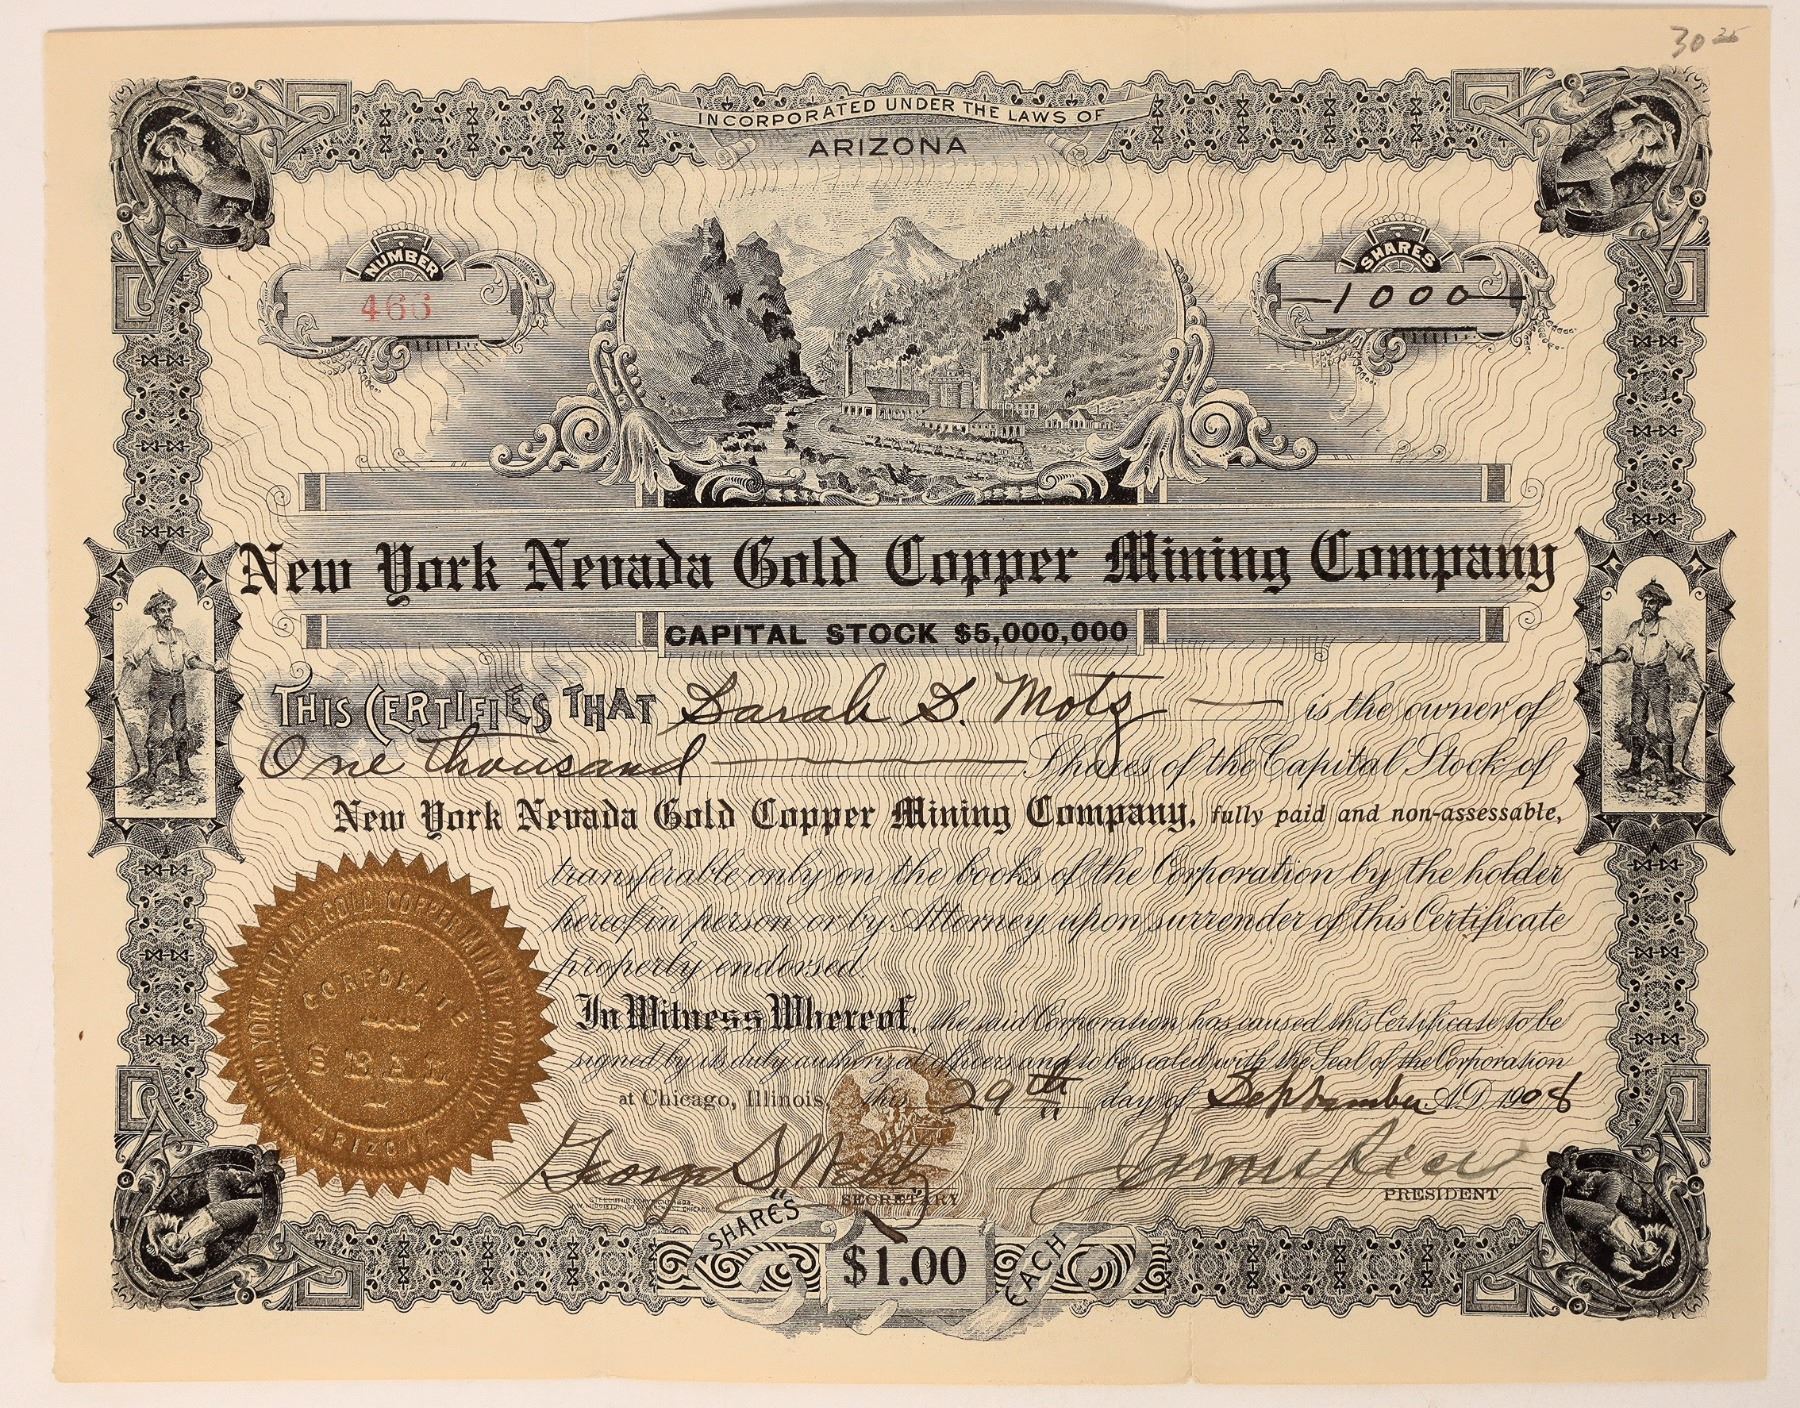 30 25
INCORPORATED UNDER THE LAWS OF
ARIZONA
NUMBER
463
SHARES
1000
New York Nevada Gold Copper Mining Company
CAPITAL STOCK $5,000,000
THIS CERTIFIES THAT Sarah S. Motz is the owner of
One thousand Shares of the Capital Stock of
New York Nevada Gold Copper Mining Company, fully paid and non-assessable,
transferable only on the books of the Corporation by the holder
hereof in person or by Attorney upon surrender of this Certificate
properly endorsed.
In Witness Whereof, the said Corporation has caused this Certificate to be
signed by its duly authorized officers and to be sealed with the Seal of the Corporation
at Chicago, Illinois, this 29th day of September A.D. 1908
NEW YORK NEVADA GOLD COPPER MINING COMPANY
CORPORATE
SEAL
ARIZONA
George S. Webb
SECRETARY
PRESIDENT
SHARES
$1.00
EACH